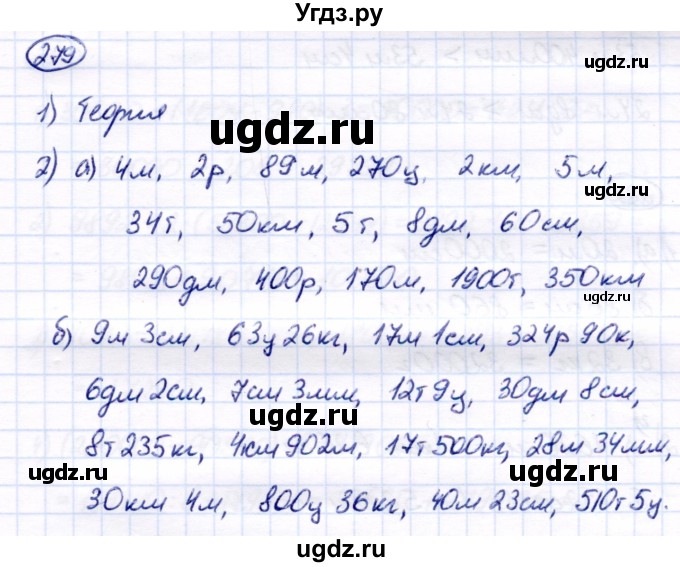 Угдз.ру
279
ugdz.ru
1) Теория
ugdz.ru
2) а) 4м, 2р, 89м, 270ц, 2км, 5м,
ugdz.ru
34т, 50км, 5т, 8дм, 60см,
290дм, 400р, 170м, 1900т, 350км
ugdz.ru
б) 9м 3см, 63ц 26кг, 17м 1см, 324р 90к,
6дм 2см, 7см 3мм, 12т 9ц, 30дм 8см,
ugdz.ru
8т 235кг, 4км 902м, 17т 500кг, 28м 34мм,
ugdz.ru
ugdz.ru
30км 4м, 800ц 36кг, 40м 23см, 510т 5ц.
ugdz.ru